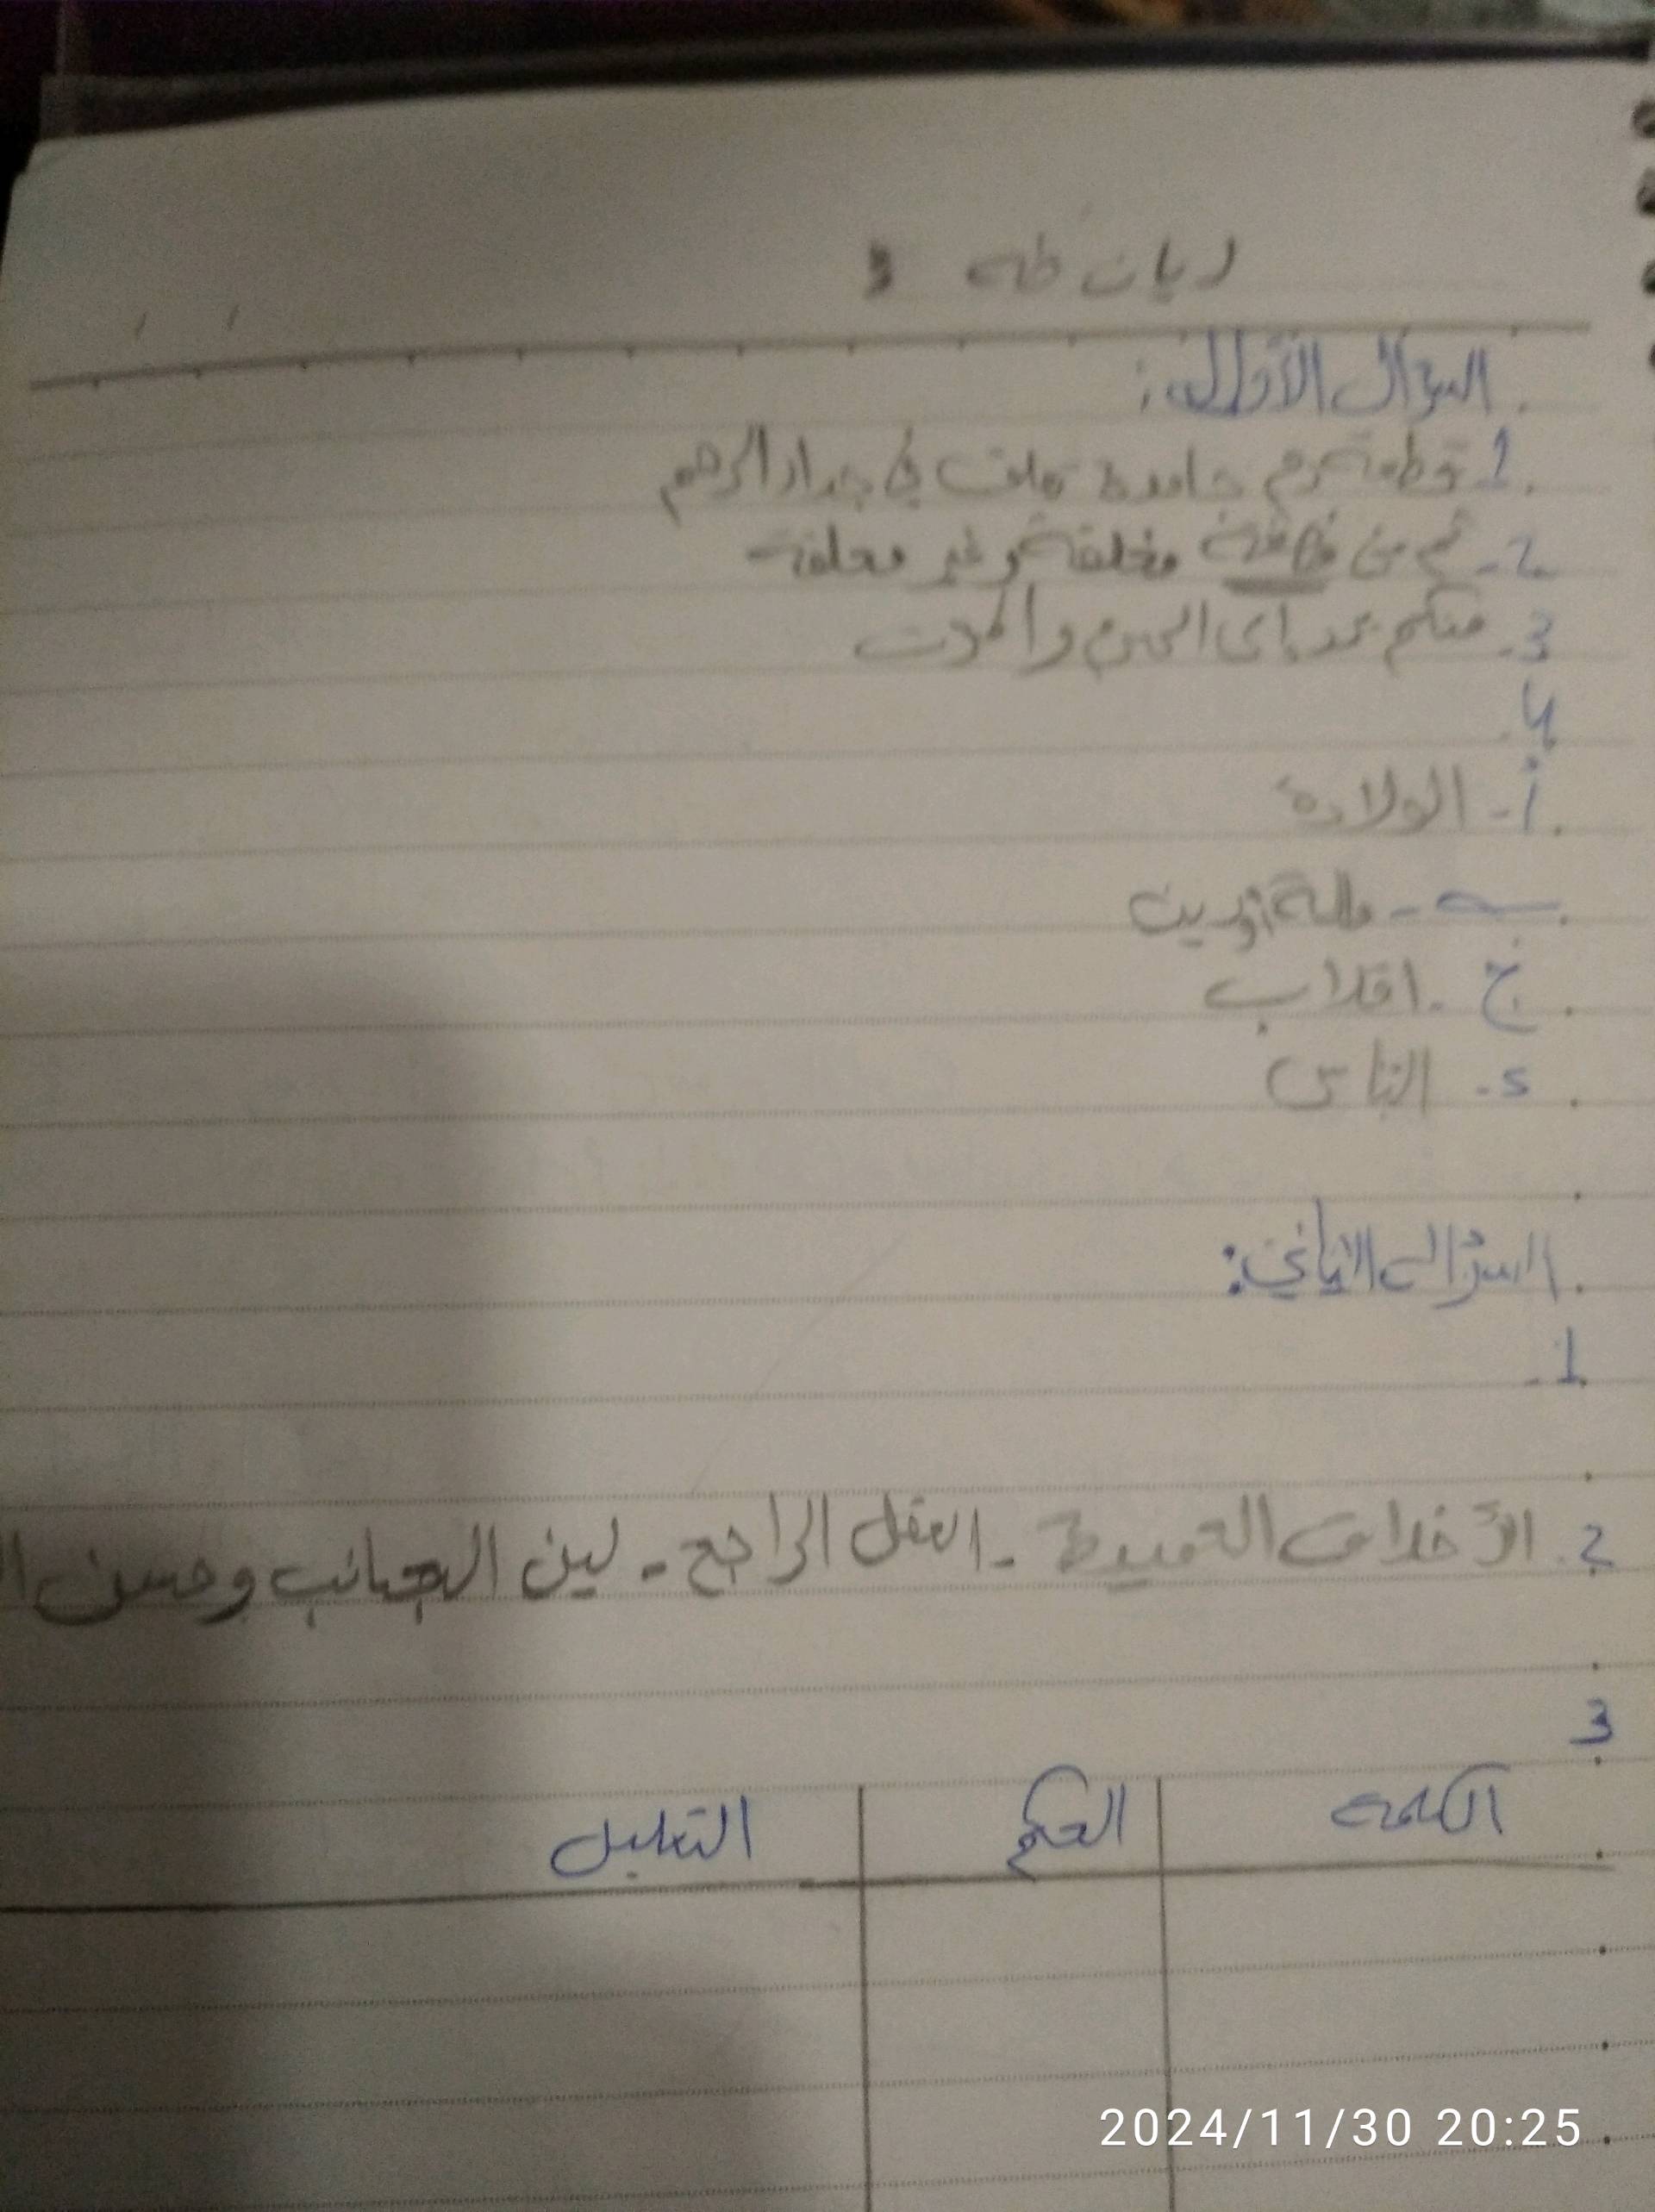 ريان طه 3
السؤال الأول:
1. قطعة دم جامدة تعلق في جدار الرحم
2- ثم من مضغة مخلقة وغير مخلقة
3. منكم بعد الهرم والموت
4.
أ- الولادة
ب-
ج - اقتراب
د- الناس
السؤال الثاني:
1.
2. الأخلاق الحميدة - العقل الراجح - لين الجانب وحسن
3
الكلمة الحكم التعليل
2024/11/30 20:25